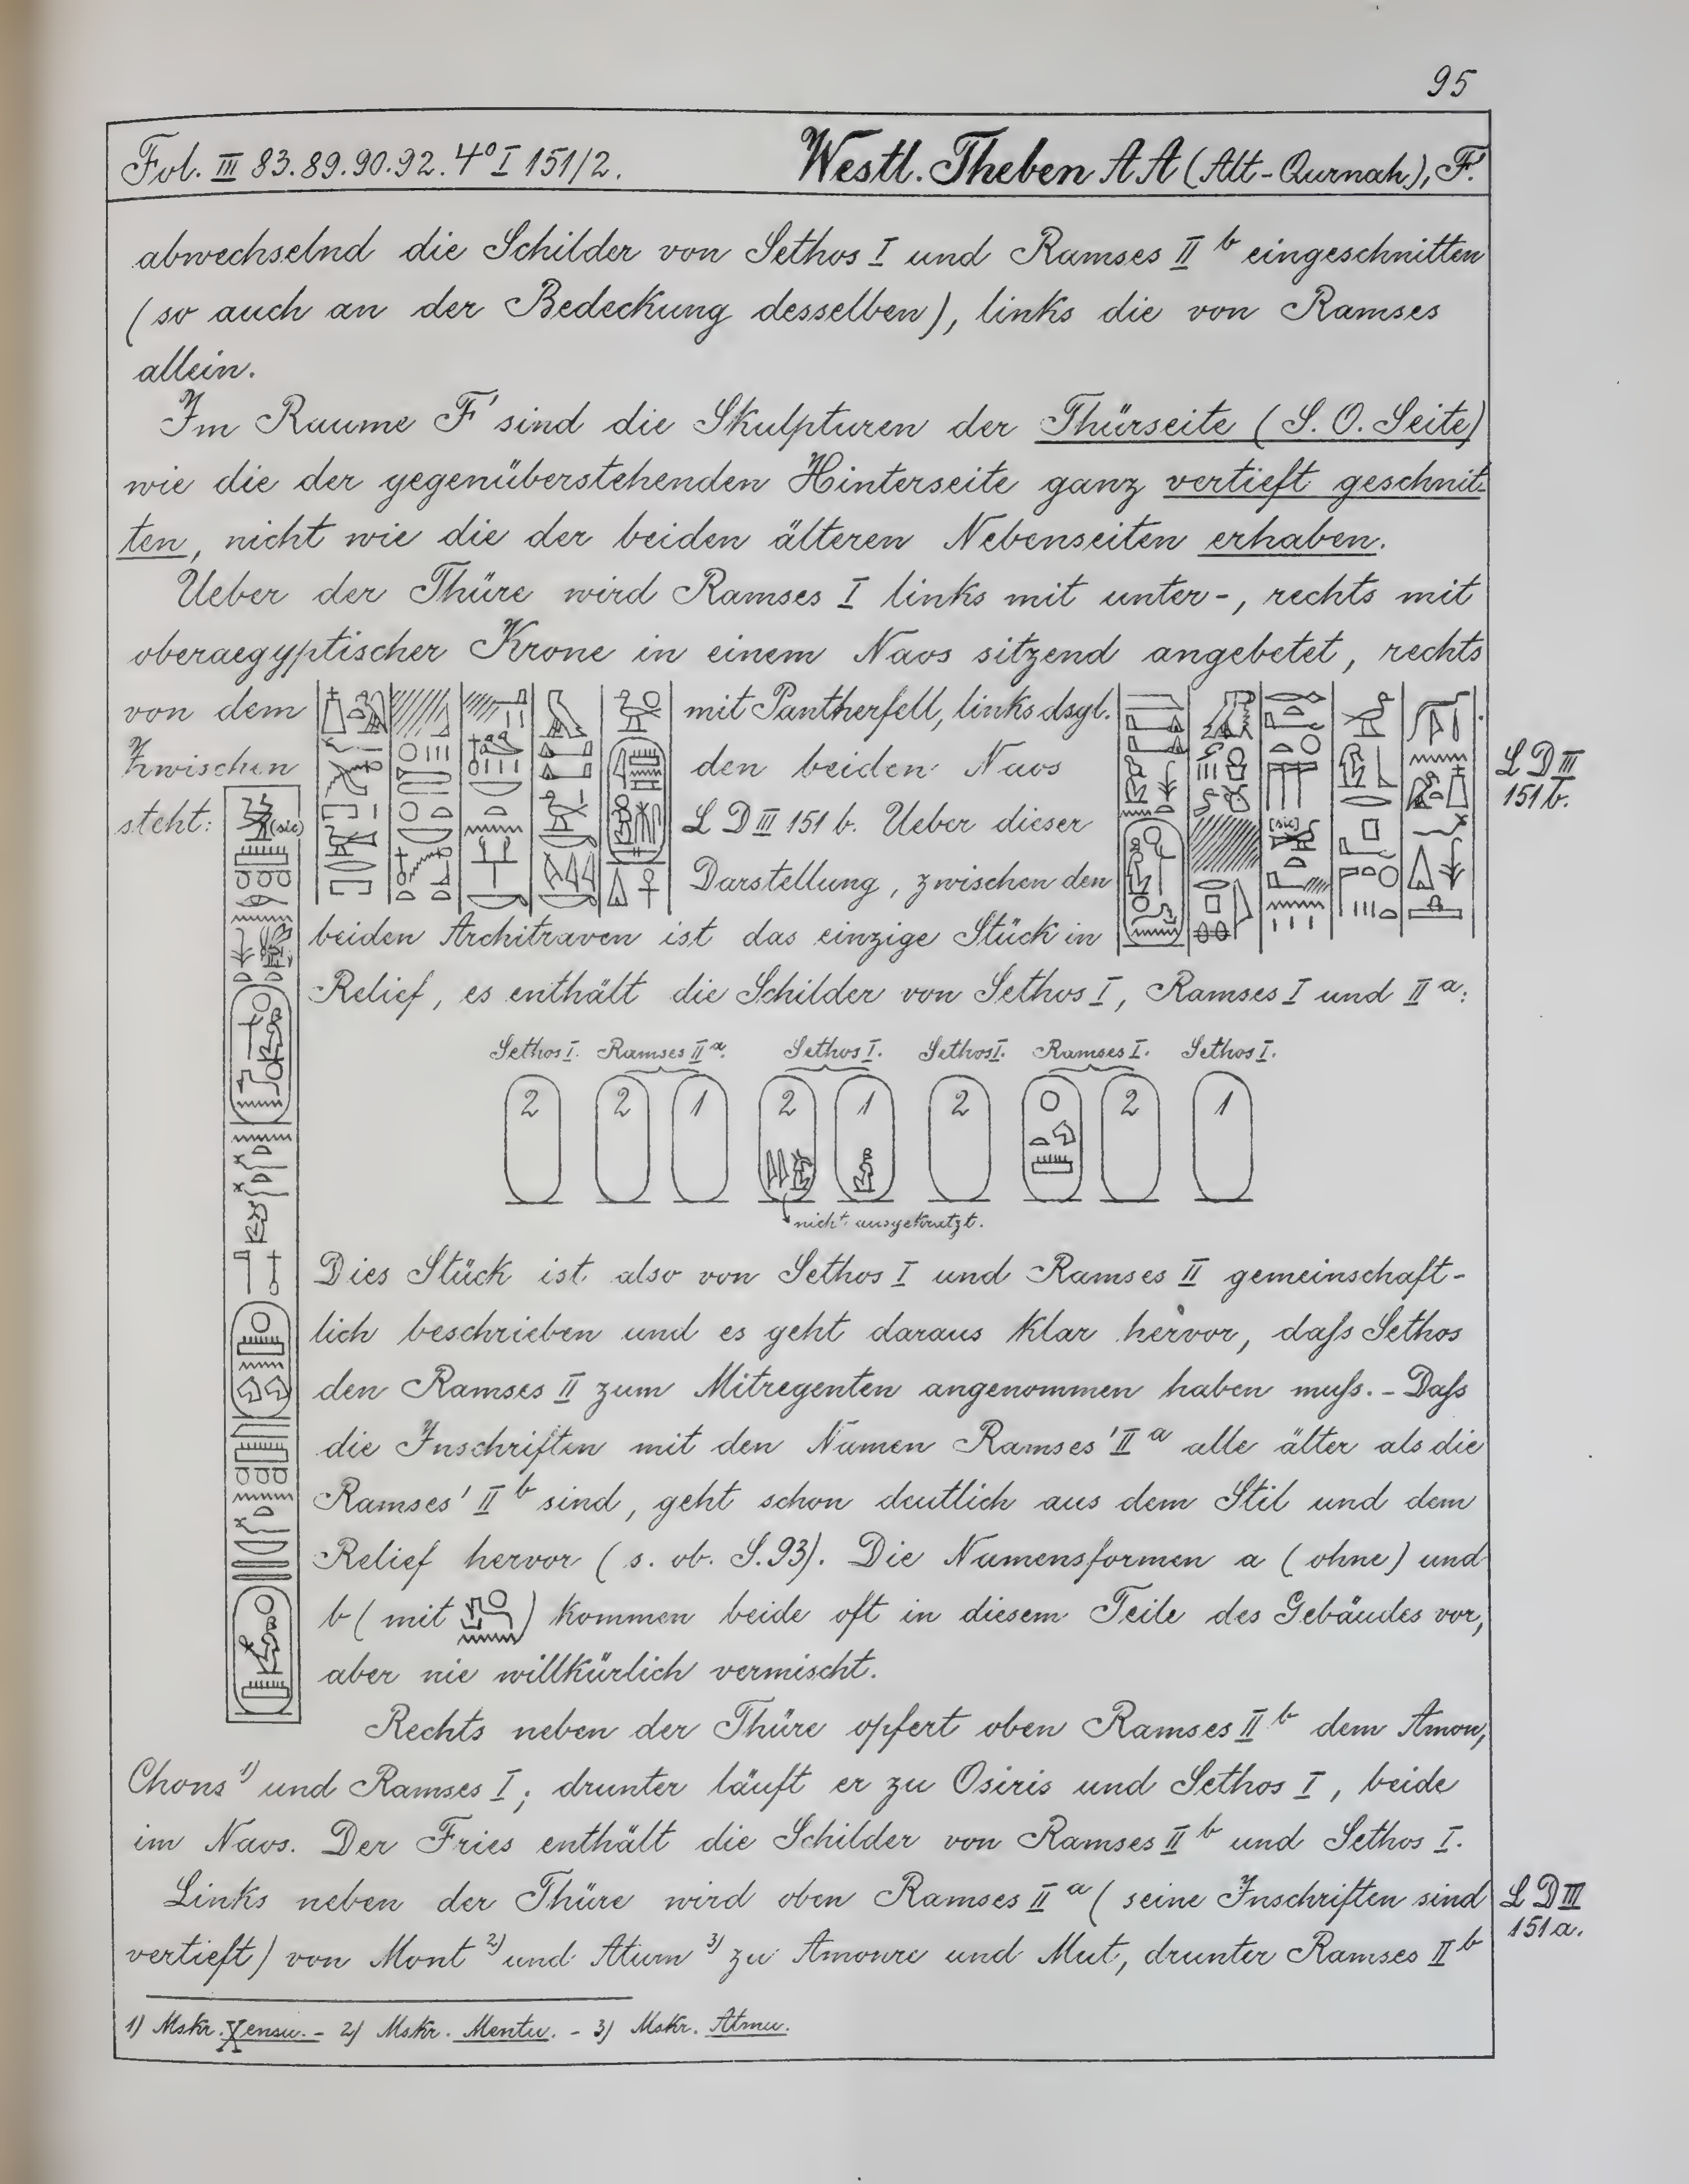 95
Fol. III 83.89.90.92. 4° I 151/2. Westl. Theben AA (Alt-Qurnah), F.
abwechselnd die Schilder von Sethos I und Ramses II b eingeschnitten
(so auch an der Bedeckung desselben), links die von Ramses
allein.
Im Raume F' sind die Skulpturen der Thürseite (S. O. Seite)
wie die der gegenüberstehenden Hinterseite ganz vertieft geschnit-
ten, nicht wie die der beiden älteren Nebenseiten erhaben.
Ueber der Thüre wird Ramses I links mit unter-, rechts mit
oberaegyptischer Krone in einem Naos sitzend angebetet, rechts
von dem mit Pantherfell, links dsgl.
Zwischen den beiden Naos
steht: L D III 151 b. Ueber dieser
(sic)
[sic]
Darstellung, zwischen den
beiden Architraven ist das einzige Stück in
Relief, es enthält die Schilder von Sethos I, Ramses I und II a:
L D III
151 b.
Sethos I. Ramses II a. Sethos I. Sethos I. Ramses I. Sethos I.
2 2 1 2 1 2 2 1
nicht ausgekratzt.
Dies Stück ist also von Sethos I und Ramses II gemeinschaft-
lich beschrieben und es geht daraus klar hervor, daſs Sethos
den Ramses II zum Mitregenten angenommen haben muſs. - Daſs
die Inschriften mit den Namen Ramses' II a alle älter als die
Ramses' II b sind, geht schon deutlich aus dem Stil und dem
Relief hervor (s. ob. S. 93). Die Namensformen a (ohne) und
b (mit ) kommen beide oft in diesem Teile des Gebäudes vor,
aber nie willkürlich vermischt.
Rechts neben der Thüre opfert oben Ramses II b dem Amon,
Chons 1) und Ramses I; drunter läuft er zu Osiris und Sethos I, beide
im Naos. Der Fries enthält die Schilder von Ramses II b und Sethos I.
Links neben der Thüre wird oben Ramses II a (seine Inschriften sind
vertieft) von Mont 2) und Atum 3) zu Amonre und Mut, drunter Ramses II b
L D III
151 a.
1) Mskr. Xensu. - 2) Mskr. Mentu. - 3) Mskr. Atmu.